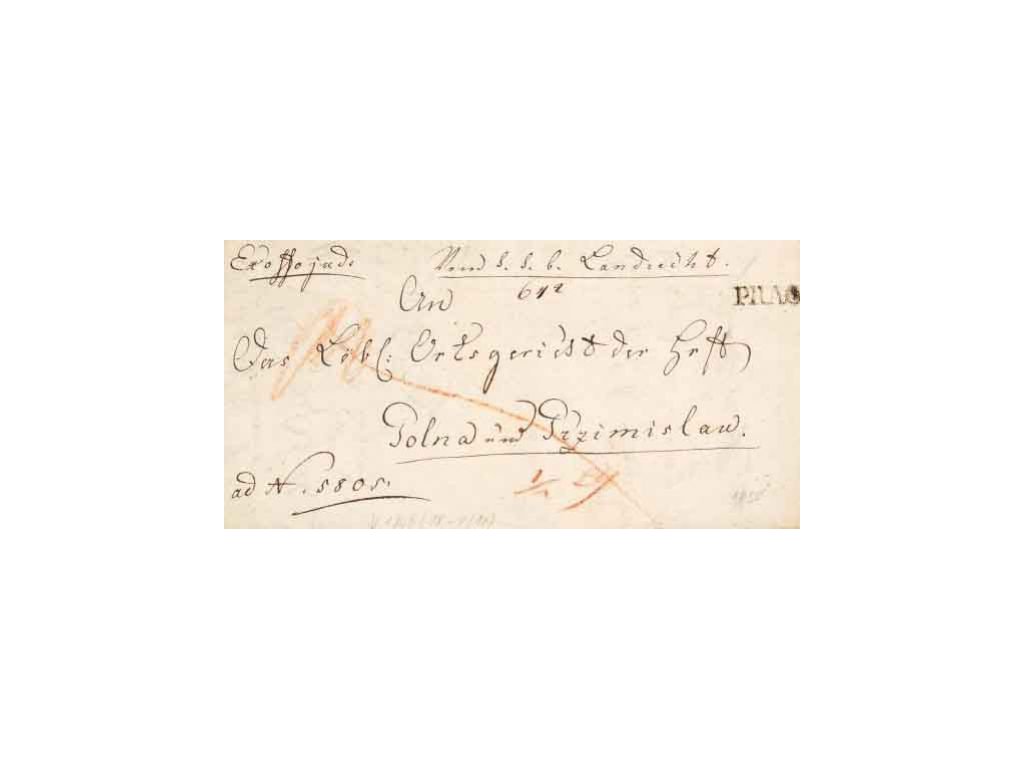 Exoffo jud. Vom k. k. b. Landrecht.
642
PRAG
An
Das Löbl: Ortsgericht der Hrft
Polna und Przimislau.
ad N. 5805.